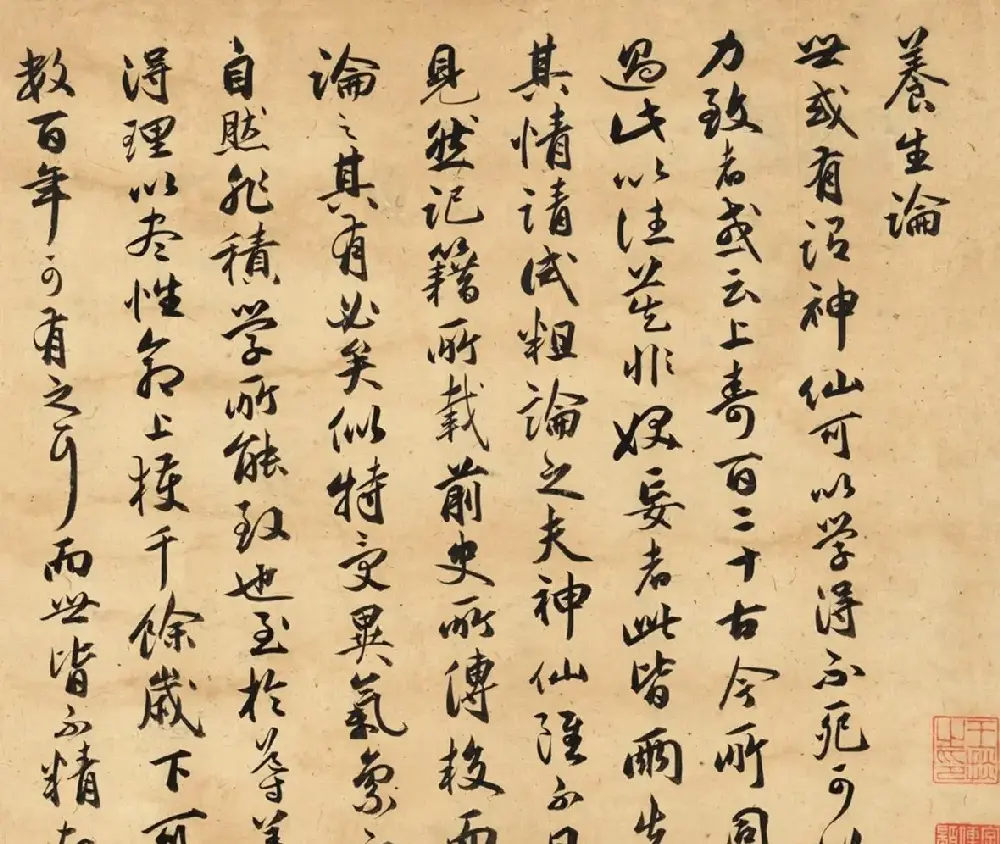 養生論
世或有謂神仙可以學得不死可以
力致者或云上壽百二十古今所同
過此以往莫非妖妄者此皆兩失
其情請試粗論之夫神仙雖不目
見然記籍所載前史所傳較而
論之其有必矣似特受異氣稟之
自然非積學所能致也至於導養
得理以盡性命上獲千餘歲下可
數百年可有之耳而世皆不精故